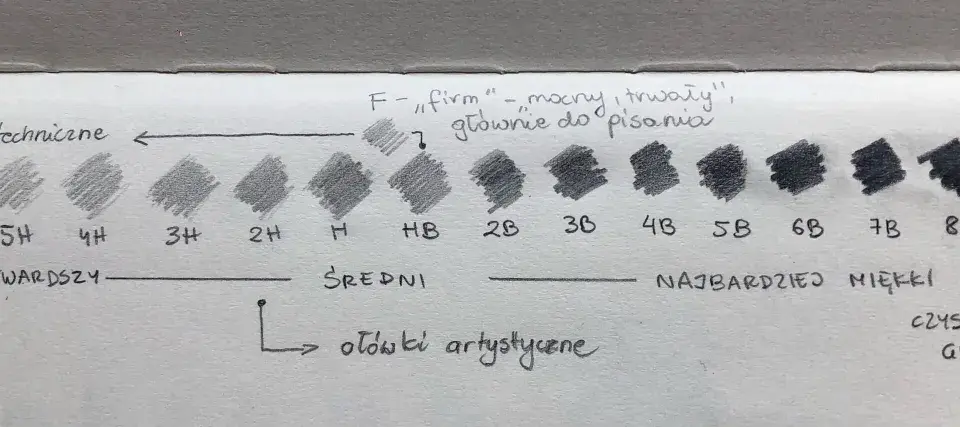 F - „firm" - „mocny, trwały",
głównie do pisania
techniczne
5H 4H 3H 2H H HB 2B 3B 4B 5B 6B 7B 8
WARDSZY ŚREDNI NAJBARDZIEJ MIĘKKI
ołówki artystyczne
CZYS